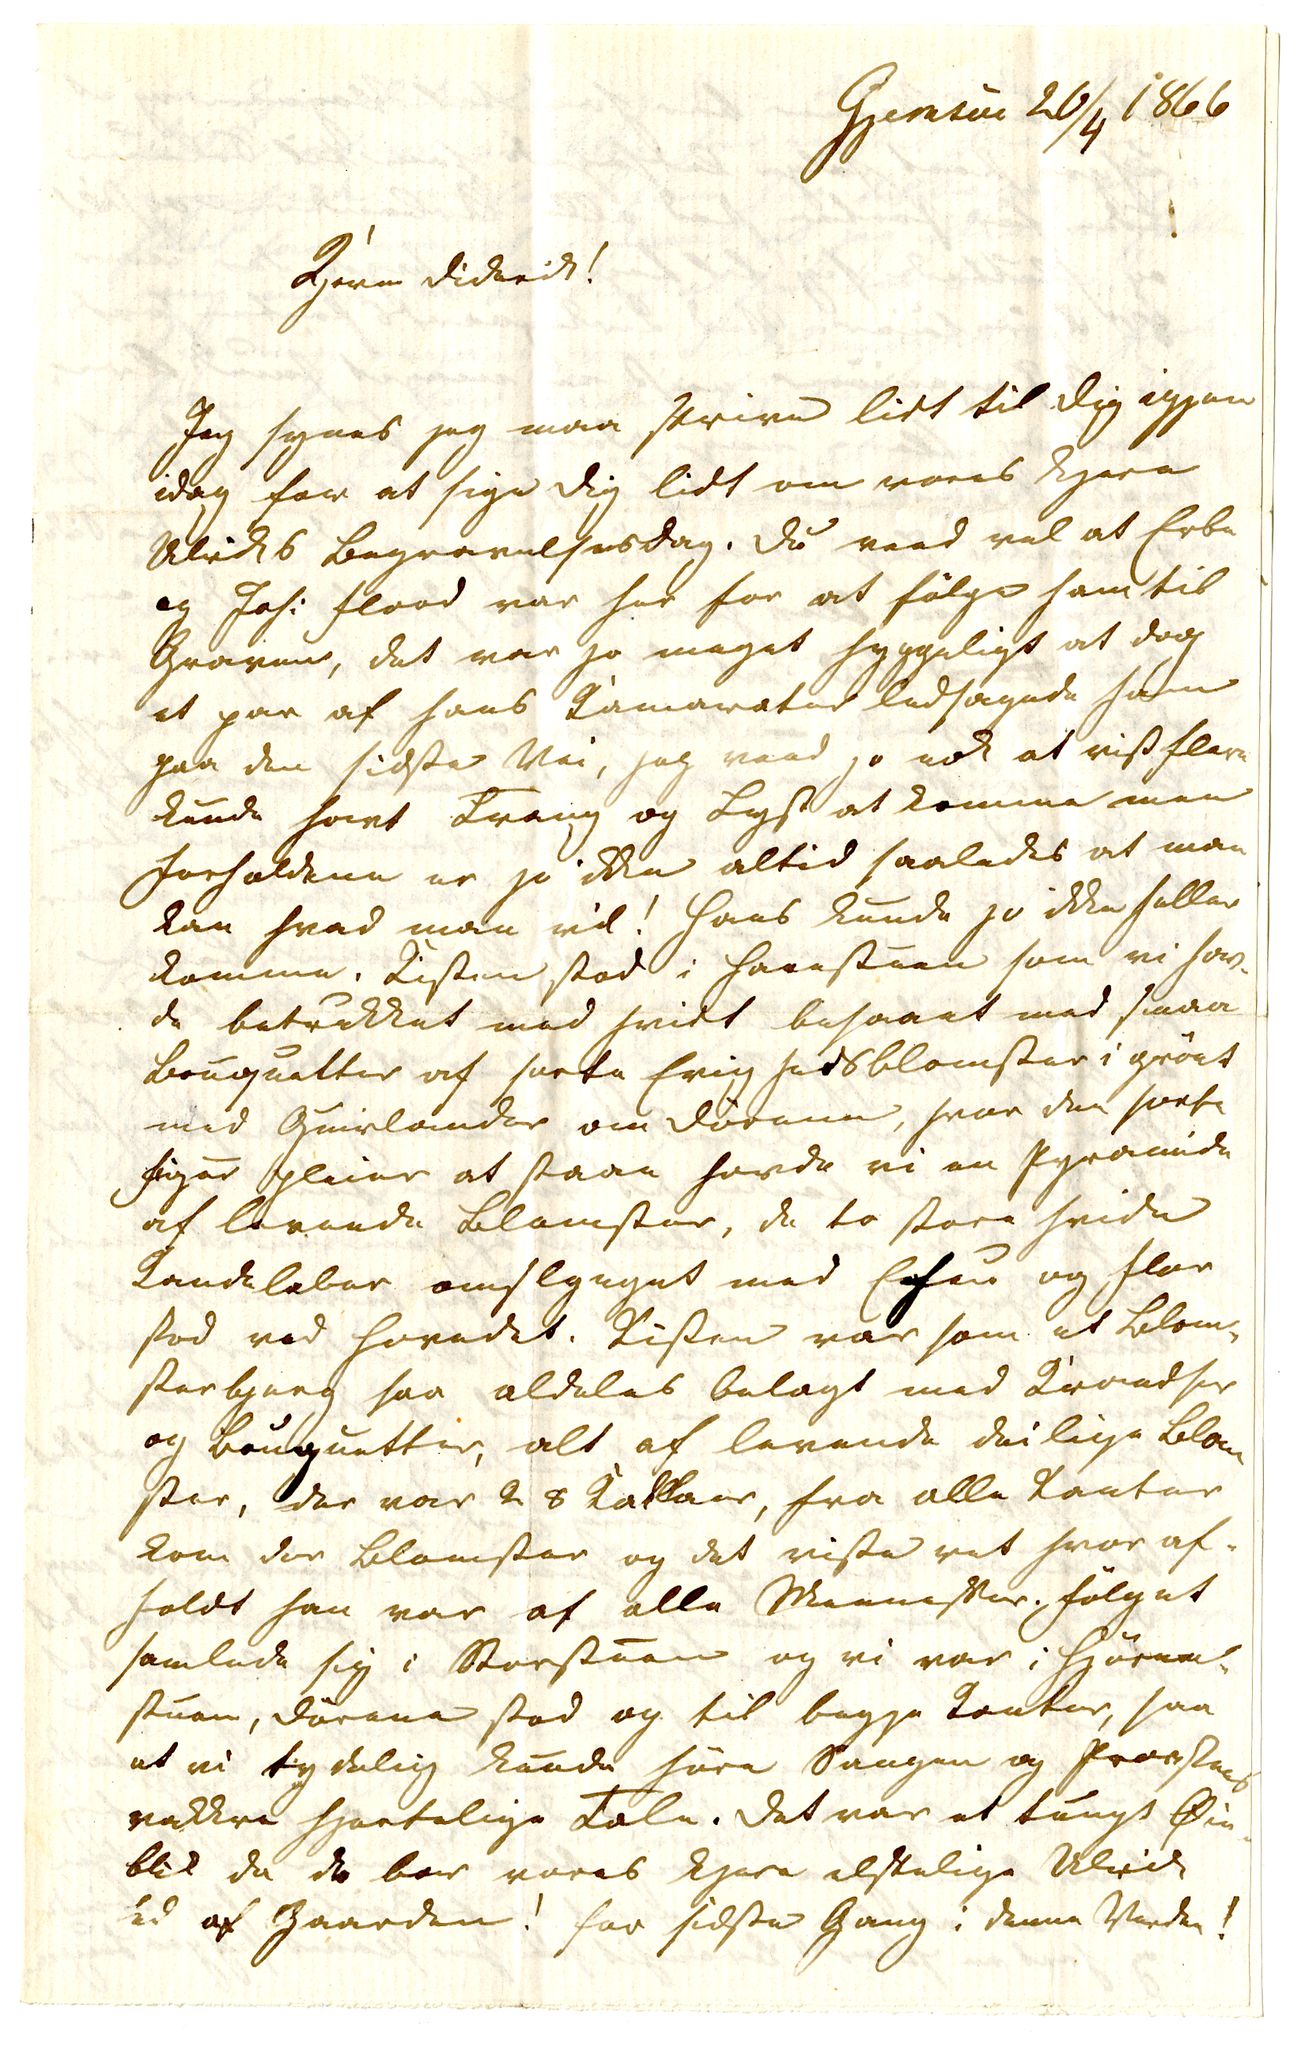 Gjemsøe 26/4 1866
Kjere Didrik!
Jeg synes jeg maa skrive lidt til Dig igjen
idag for at sige Dig lidt om vores kjere
Ulriks Begravelsesdag. Du veed vel at Erbe
og Joh: Flood var her for at følge ham til
Graven, det var jo meget hyggeligt at dog
et par af hans Kamarater ledsagede ham
paa den sidste Vei, jeg veed jo nok at vist flere
kunde havt Trang og Lyst at komme men
Forholdene er jo ikke altid saaledes at man
kan hvad man vil! Hans kunde jo ikke heller
komme. Kisten stod i Havestuen som vi hav-
de betrukket med hvidt besaaet med smaa
Bouquetter af sorte Evighedsblomster i grønt
med Guirlander om Dørene, hvor den sorte
Figur pleier at staae havde vi en Pyramide
af levende Blomster, de to store hvide
Kandelaber omslynget med Epheu og Flor
stod ved Hovedet. Kisten var som et Blom-
sterbjerg saa aldeles belagt med Krandser
og Bouquetter, alt af levende deilige Blom
ster, der var 28 Kallaer, fra alle Kanter
kom der Blomster og det viste ret hvor af-
holdt han var af alle Mennesker. Følget
samlede sig i Storstuen og vi var i Hjørne-
stuen, Dørene stod op til begge Kanter, saa
at vi tydelig kunde høre Sangen og Provstens
vakkre hjertelige Tale. Det var et tungt Øie-
blik da de bar vores kjere elskelige Ulrik
ud af Gaarden! for sidste Gang i denne Verden!